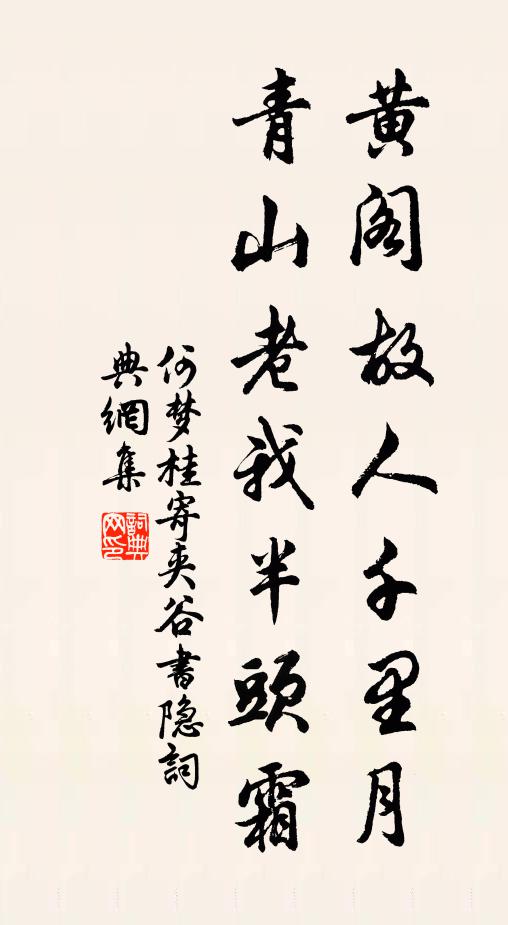 黄阁故人千里月
青山老我半頭霜
何梦桂寄夹谷書隐詞
典網集
詞典网印